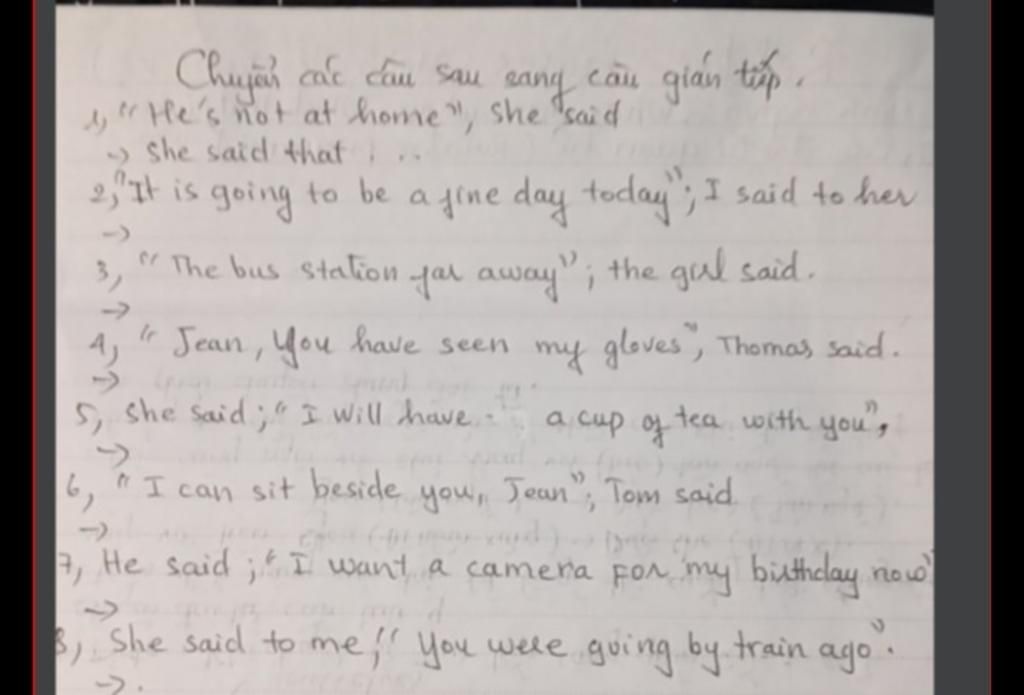 Chuyển các câu sau sang câu gián tiếp.
1, "He's not at home", she said
-> She said that ...
2, "It is going to be a fine day today"; I said to her
->
3, "The bus station far away"; the girl said.
->
4, "Jean, You have seen my gloves", Thomas said.
->
5, She said; "I will have a cup of tea with you",
->
6, "I can sit beside you, Jean"; Tom said
->
7, He said; "I want a camera For my birthday now"
->
8, She said to me; "You were going by train ago".
->.